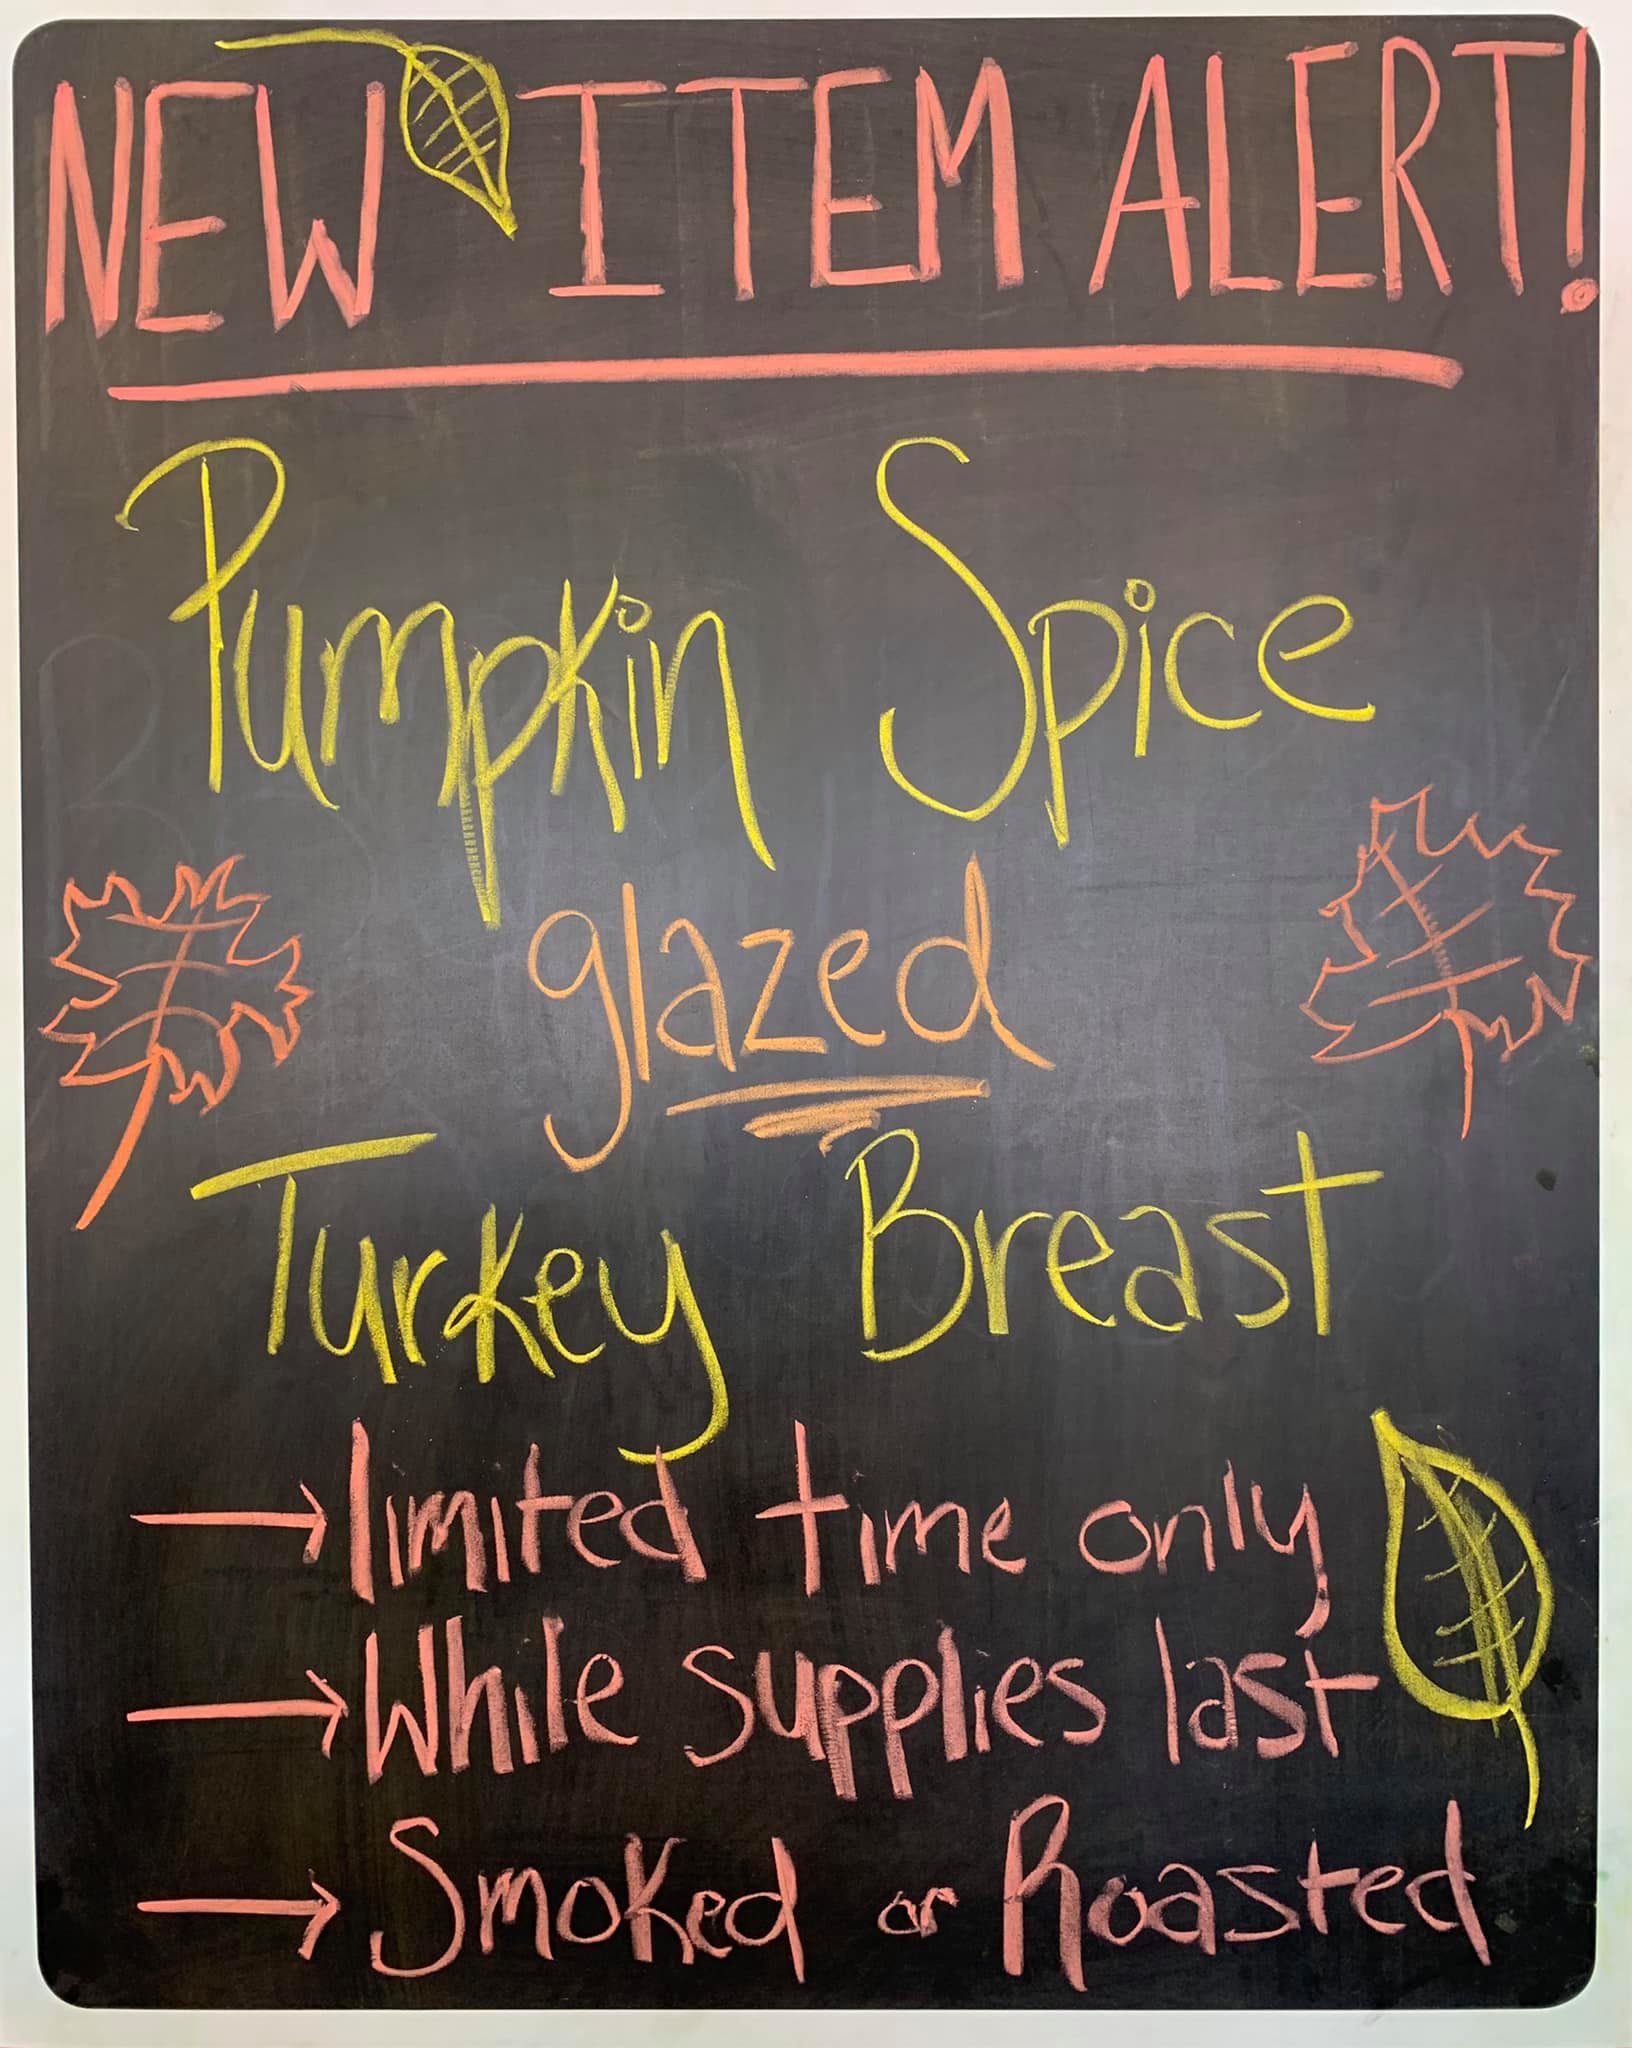 NEW ITEM ALERT!
Pumpkin Spice
glazed
Turkey Breast
→ limited time only
→ While supplies last
→ Smoked or Roasted